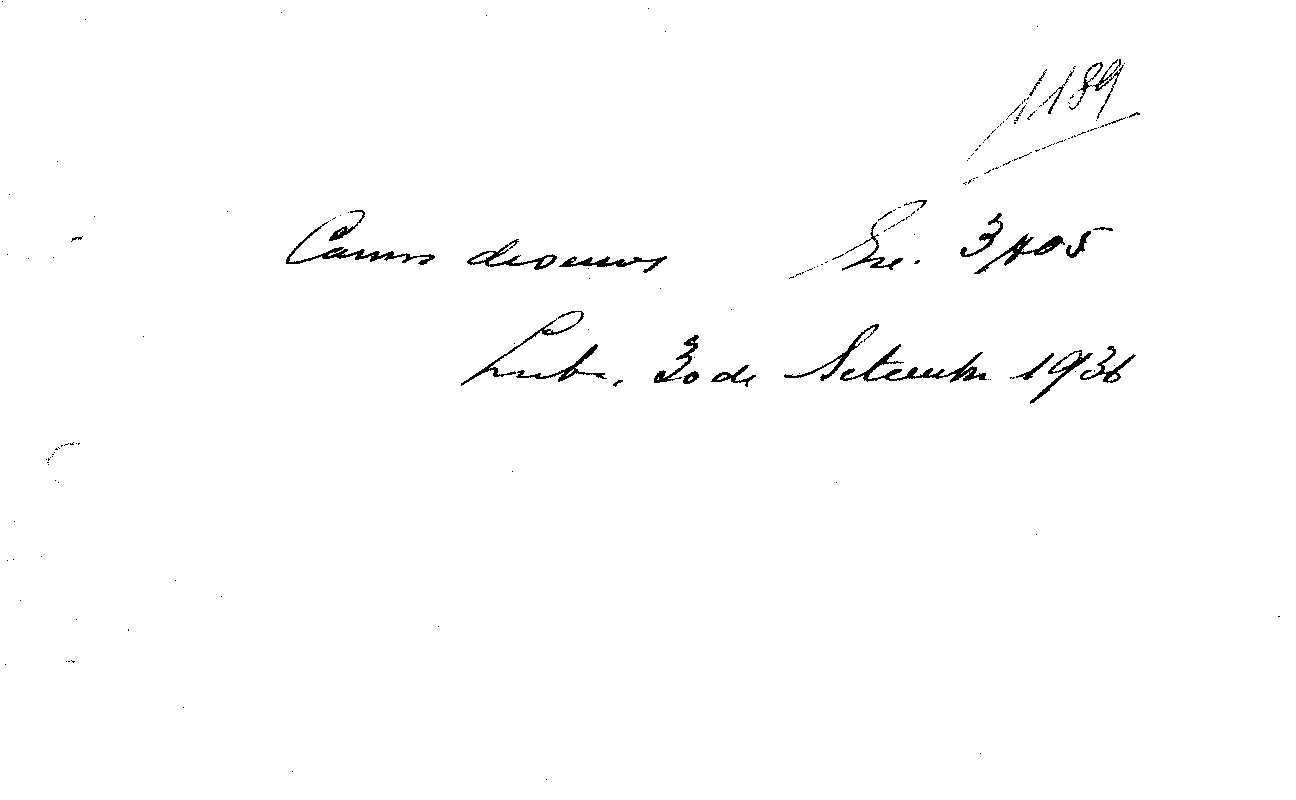 1189
Carros diversos Exe. 3405
Lisba. 30 de Setembro 1936